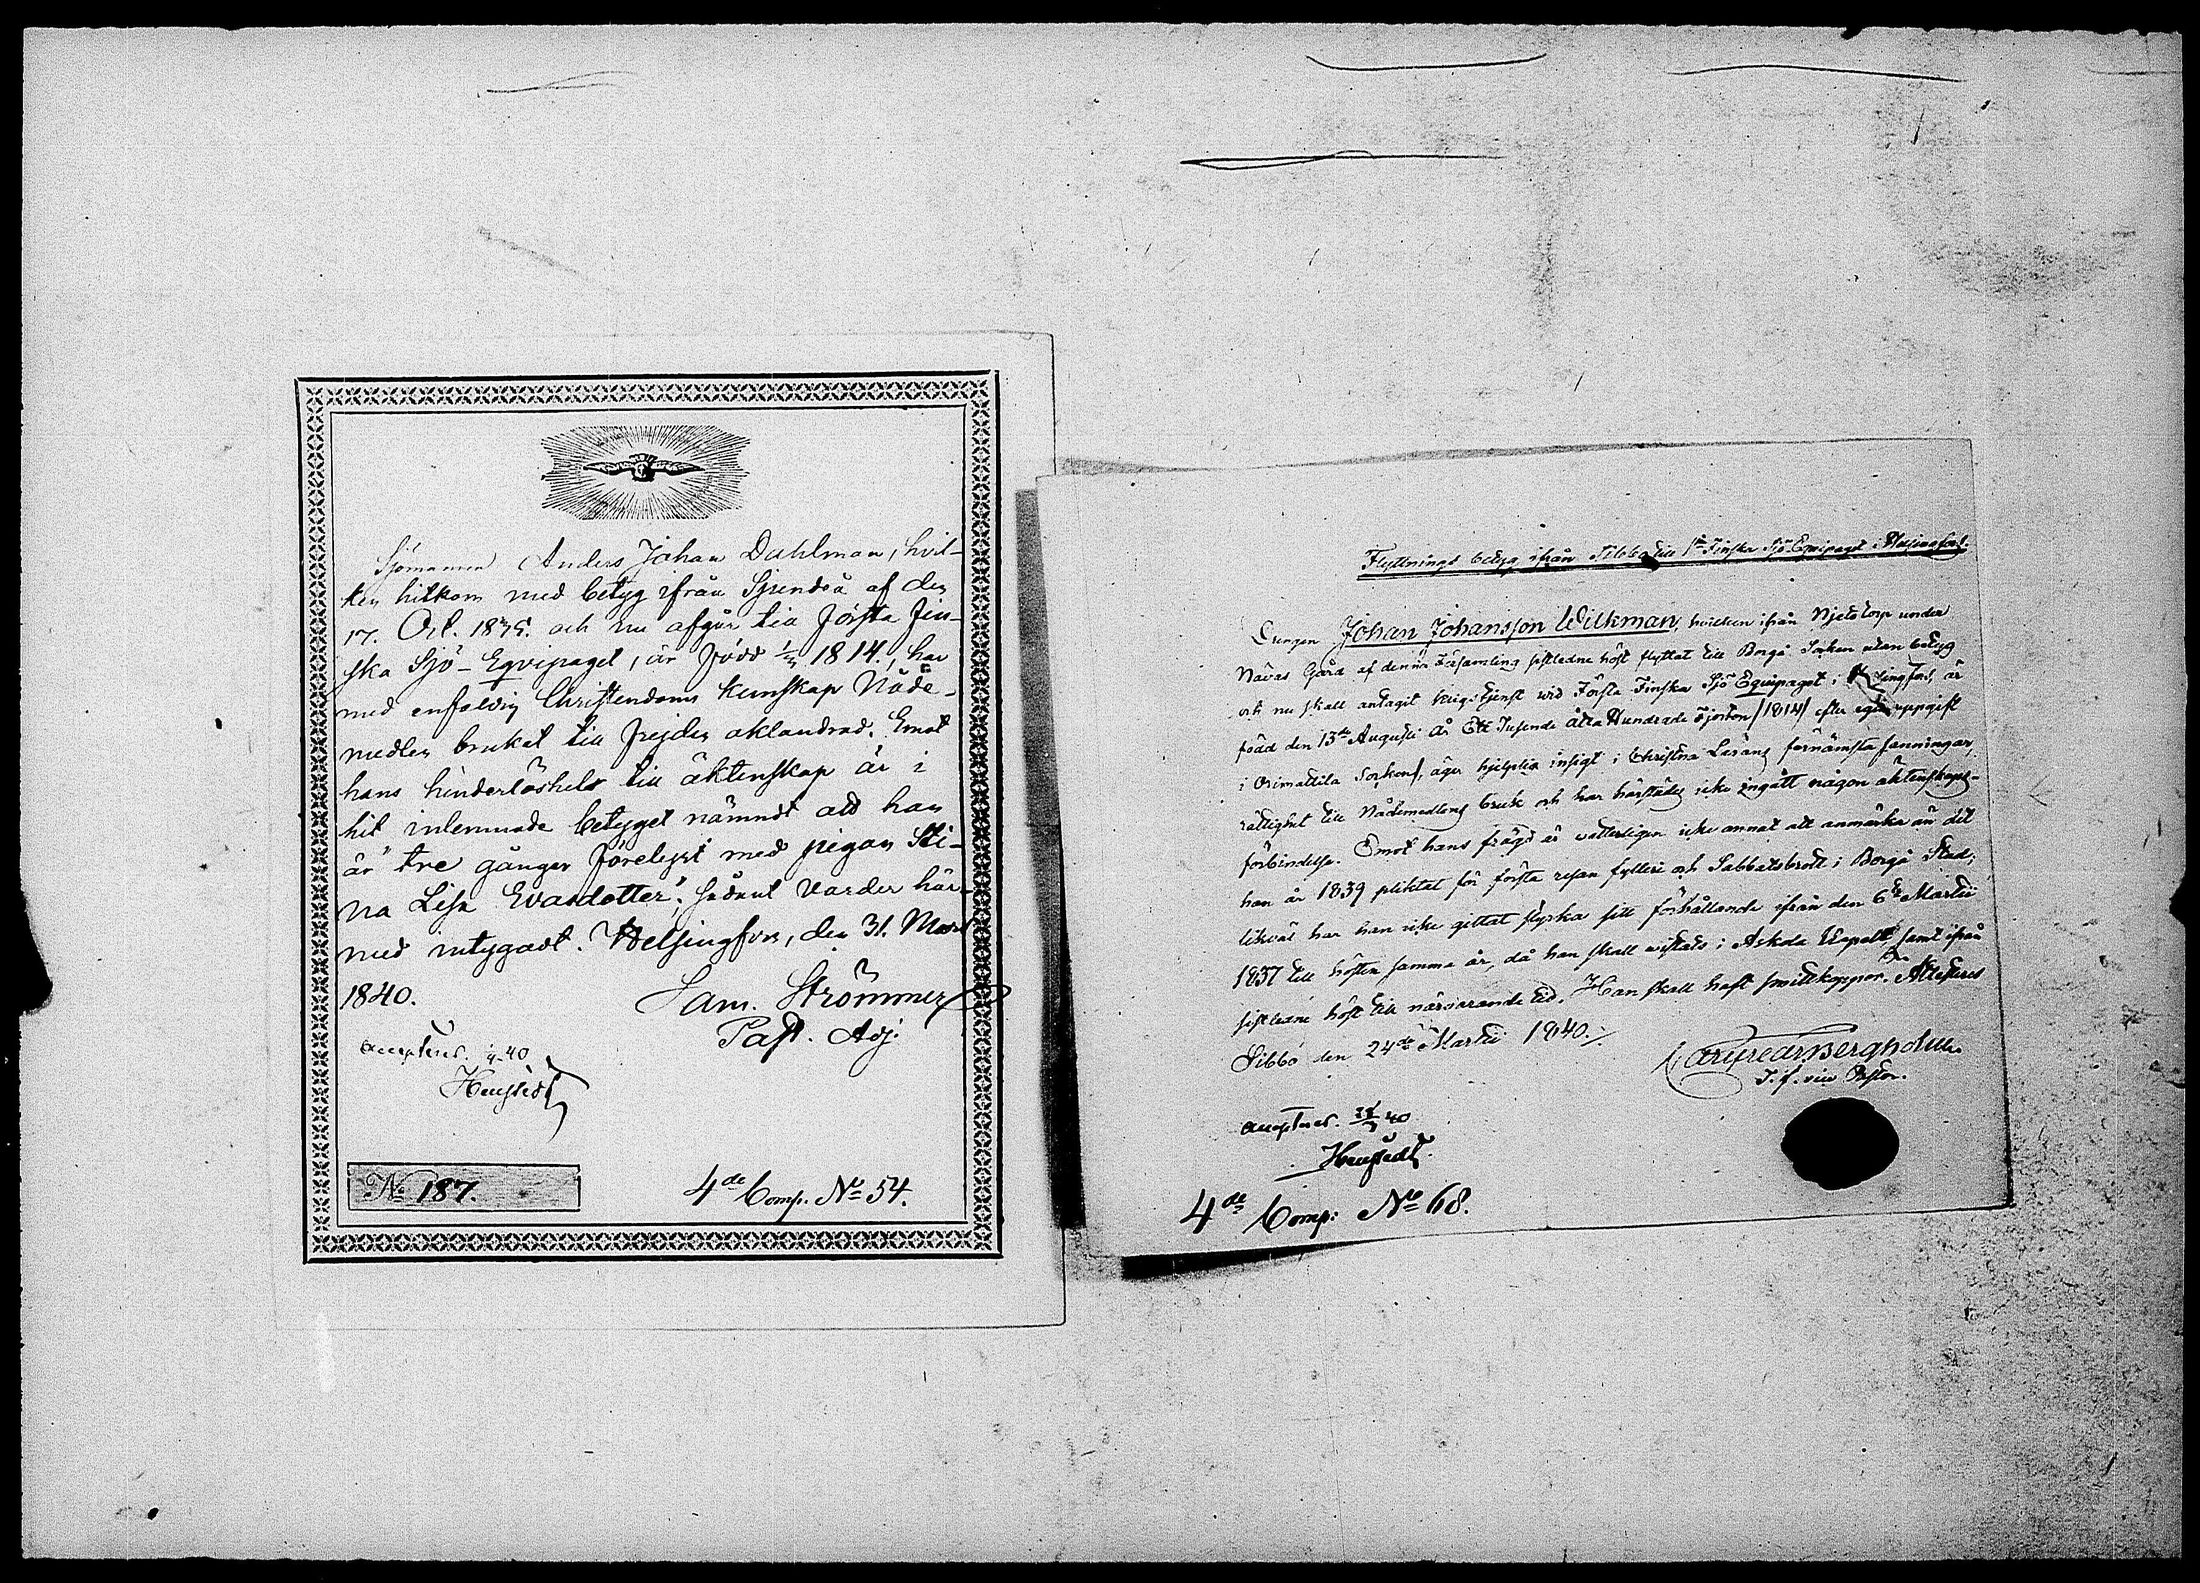 Sjömannen Anders Johan Dahlman, hvil-
ken hitkom med betyg ifrån Sjundeå af den
17. Oct. 1835. och nu afgår till Första Fin-
ska Sjö-Eqvipaget, är född 1814., har
med enfaldig Christendoms kunskap Nåde-
medlen brukat till frejden oklandrad. Emot
hans hinderlöshet till äktenskap är i
hit inlemnade betyget nämndt att han
är "tre gånger förelyst med pigan Sti-
na Lisa Evasdotter"; sådant varder här-
med intygadt. Helsingfors, den 31. Mart
1840.
Sam. Strömmer
Past. Adj.
Accepteras. 1/4 40
Heurstedt
No 187.
4de Comp. No 54.
Flyttnings betyg ifrån Sibbo till 1sta Finska Sjö-Equipaget i Helsingfors.
Drengen Johan Johansson Wilkman, hvilken ifrån Njelstorp under
Näväs Gård af denna Församling sistledne höst flyttat till Borgå Socken utan betyg
och nu skall antagit krigstjenst wid Första Finska Sjö Equipaget i Helsingfors, är
född den 13de Augusti år Ett Tusende Åtta Hundrade Fjorton /1814/ efter egen uppgift
i Orimattila Socken, äger hjelplig insigt i Christna Lärans förnämsta sanningar,
rättighet till Nådemedlens bruk och har härstädes icke ingått någon äktenskaps-
förbindelse. Emot hans frägd är wetterligen icke annat att anmärka än det
han år 1839 pliktat för första resan fylleri och Sabbatsbrott i Borgå Stad;
likväl har han icke gittat styrka sitt förhållande ifrån den 6te Martii
1837 till hösten samma år, då han skall wistats i Askola Kapell, samt ifrån
sistledne höst till närwarande tid. Han skall haft smittkoppor. Attesteras
Sibbo den 24de Martii 1840.
Bergholm
T. f. vice Pastor.
Accepteras. 40
Heurstedt.
4de Comp: No 68.